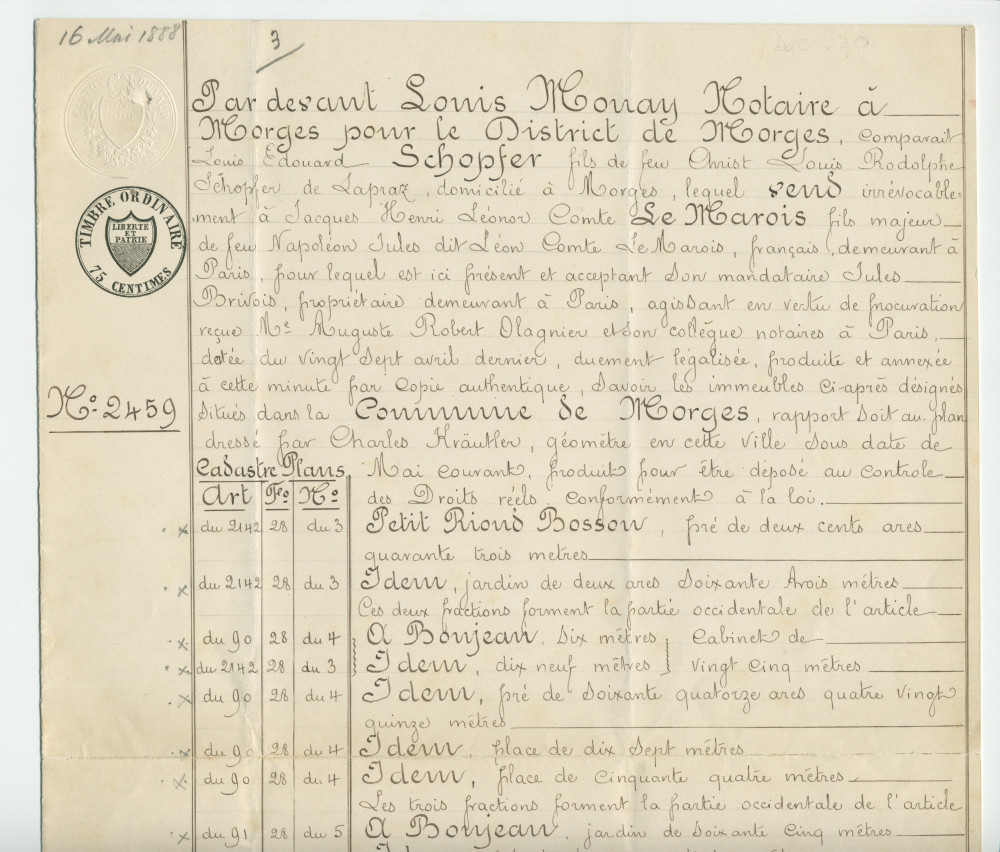 16 Mai 1888
3
Par devant Louis Monay Notaire à
Morges pour le District de Morges, comparait
Louis Edouard Schopfer fils de feu Christ Louis Rodolphe
Schopfer de Lapraz, domicilié à Morges, lequel vend irrévocable-
ment à Jacques Henri Léonor Comte Le Marois fils majeur
de feu Napoléon Jules dit Léon Comte Le Marois, français, demeurant à
Paris, pour lequel est ici présent et acceptant son mandataire Jules
Brivois, propriétaire demeurant à Paris, agissant en vertu de procuration
reçue Me Auguste Robert Olagnier et son collègue notaires à Paris,
datée du vingt sept avril dernier, duement légalisée, produite et annexée
à cette minute par copie authentique, savoir les immeubles ci-après désignés
situés dans la Commune de Morges, rapport soit au plan
dressé par Charles Kräutler, géomètre en cette ville sous date de
Mai courant, produit pour être déposé au controle
des Droits réels, conformément à la loi.
TIMBRE ORDINAIRE
LIBERTE
ET
PATRIE
75 CENTIMES
No. 2459
Cadastre Plans,
Art Fo No
du 2142 28 du 3 Petit Riond Bosson, pré de deux cents ares
quarante trois metres
du 2142 28 du 3 Idem, jardin de deux ares soixante trois mètres
Ces deux fractions forment la partie occidentale de l'article
du 90 28 du 4 A Bonjean, six mètres } Cabinet de
du 2142 28 du 3 Idem, dix neuf mètres } vingt cinq mètres
du 90 28 du 4 Idem, pré de soixante quatorze ares quatre vingt
quinze mètres
du 90 28 du 4 Idem, place de dix sept mètres
du 90 28 du 4 Idem, place de cinquante quatre mètres
Les trois fractions forment la partie occidentale de l'article
du 91 28 du 5 A Bonjean, jardin de soixante cinq mètres